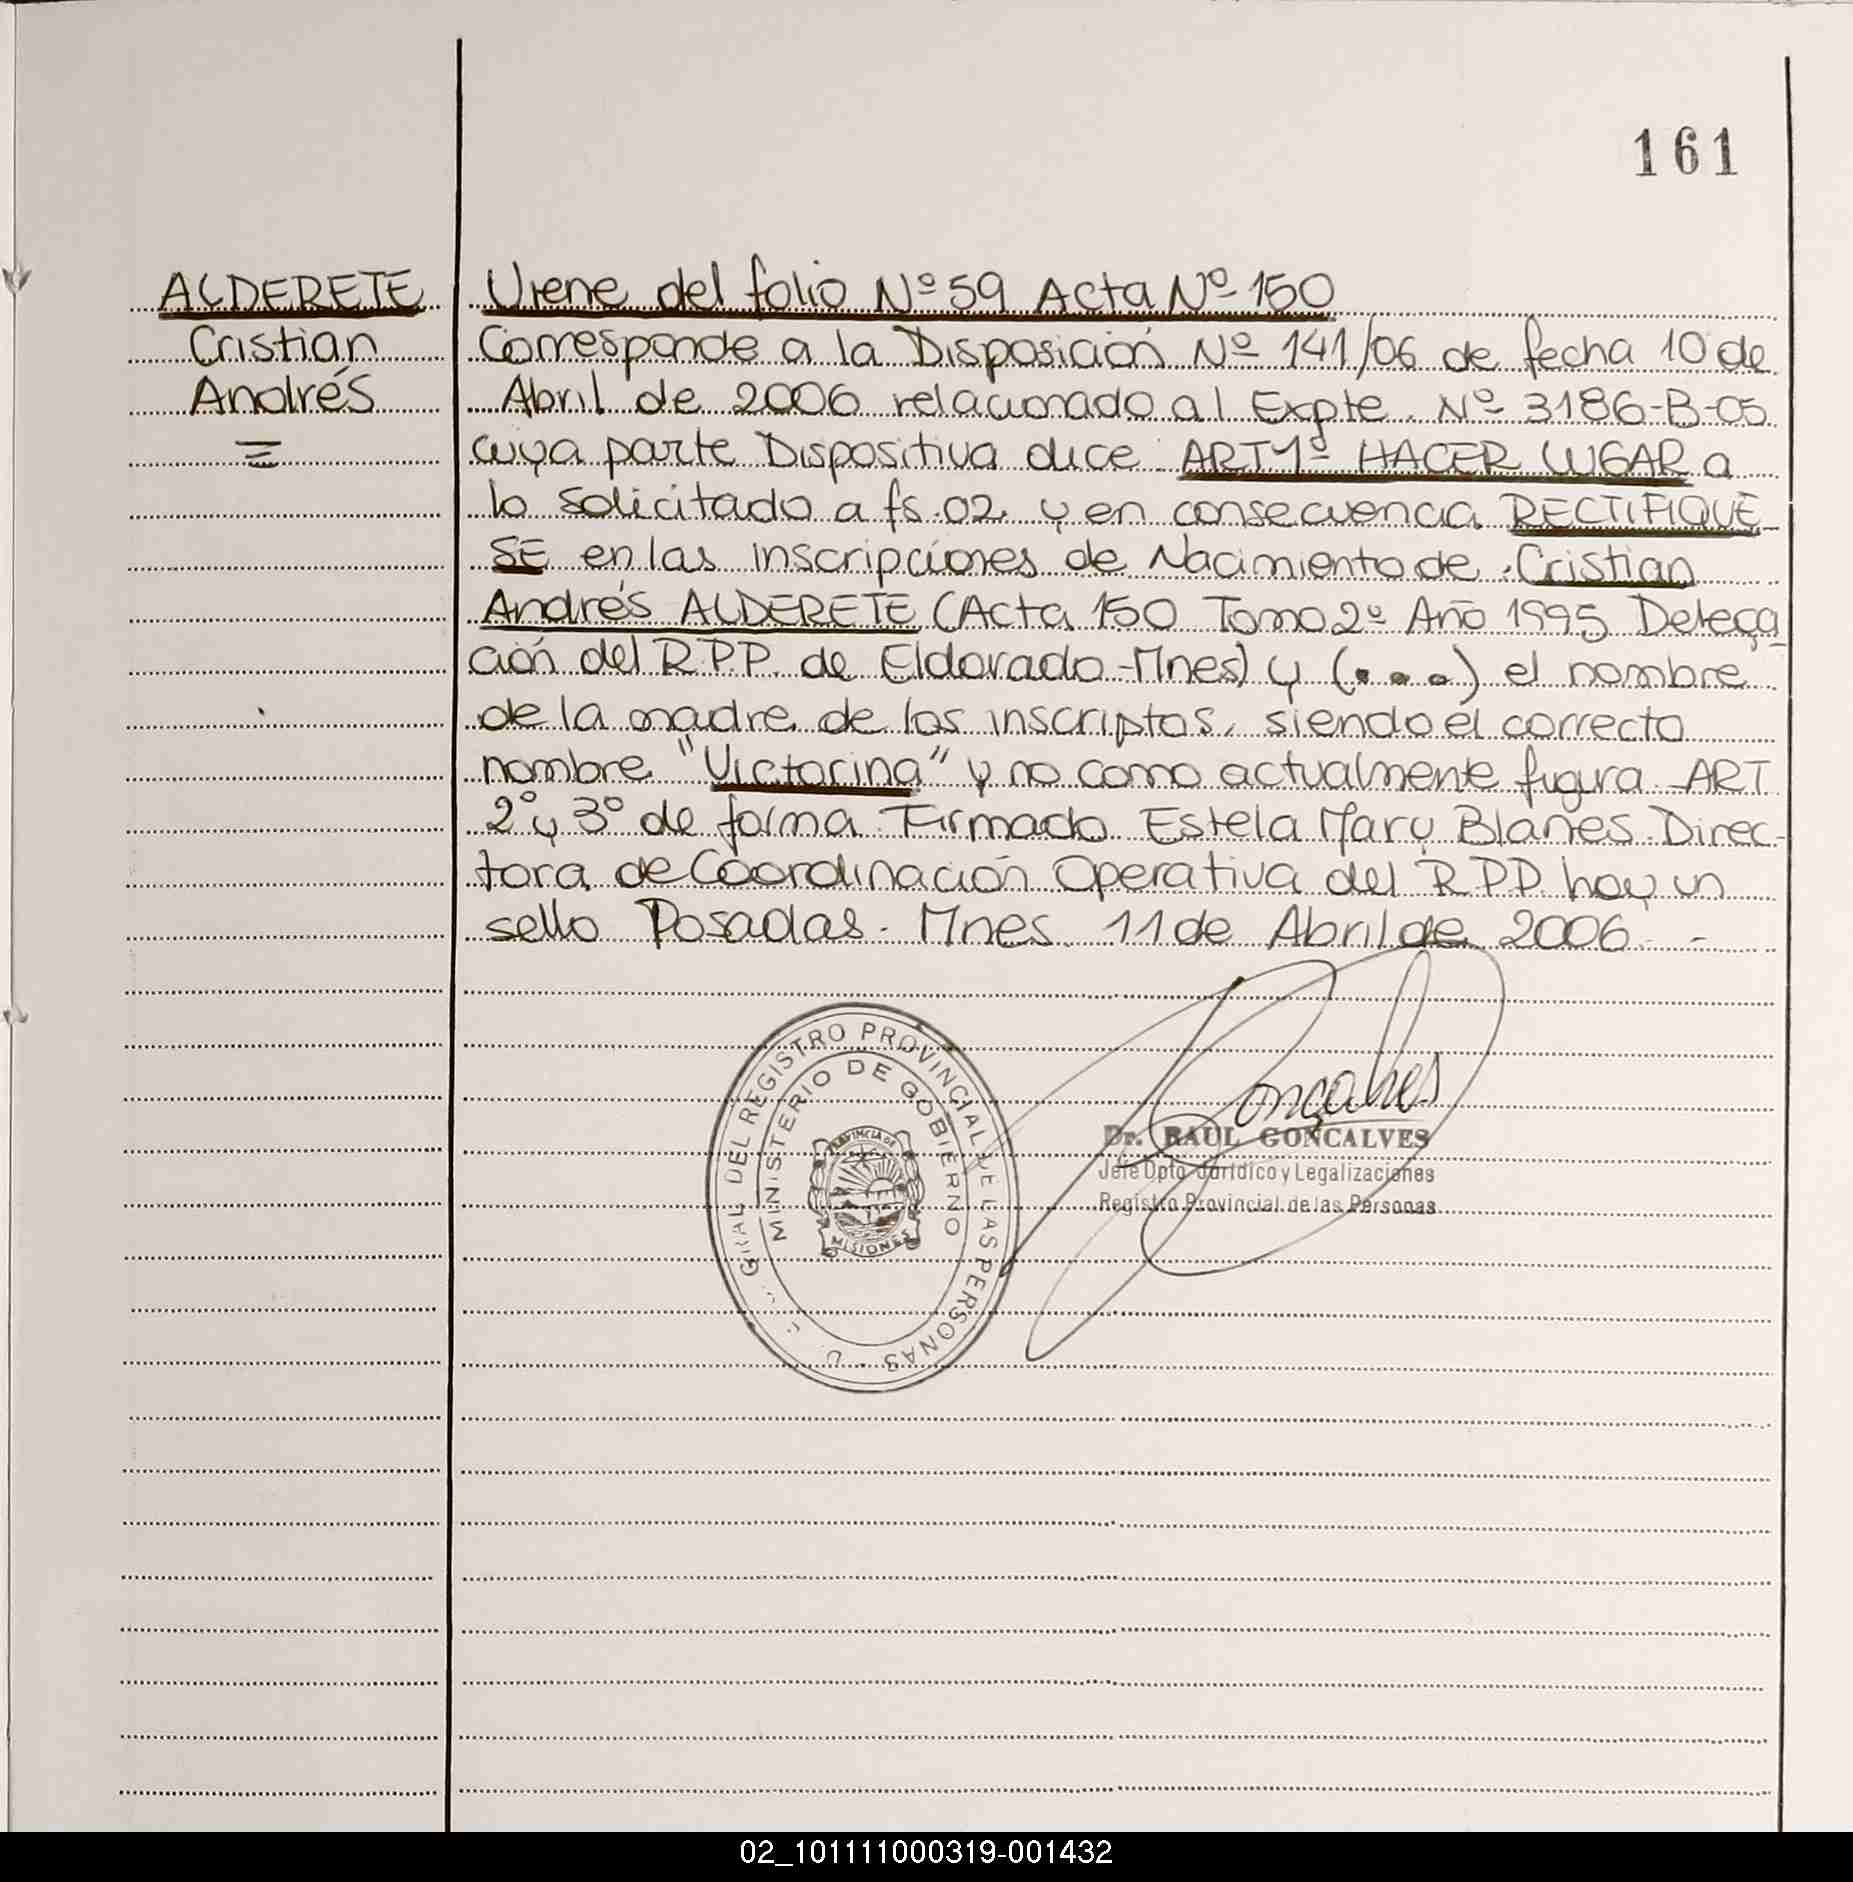 161
ALDERETE
Cristian
Andrés
Viene del folio Nº 59 Acta Nº 150
Corresponde a la Disposición Nº 141/06 de fecha 10 de
Abril de 2006 relacionado al Expte. Nº 3186-B-05
cuya parte Dispositiva dice: ART 1º HACER LUGAR a
lo solicitado a fs. 02 y en consecuencia RECTIFIQUE-
SE en las inscripciones de Nacimiento de Cristian
Andrés ALDERETE (Acta 150 Tomo 2º Año 1995 Delega-
ción del R.P.P. de Eldorado-Mnes) y (...) el nombre
de la madre de los inscriptos, siendo el correcto
nombre "Victorina" y no como actualmente figura. ART
2º y 3º de forma. Firmado Estela Mary Blanes. Direc-
tora de Coordinación Operativa del R.P.P. hay un
sello Posadas. Mnes. 11 de Abril de 2006.-
GRAL DEL REGISTRO PROVINCIAL DE LAS PERSONAS
MINISTERIO DE GOBIERNO
PROVINCIA DE
MISIONES
Gonçalves
Dr. RAUL GONCALVES
Jefe Dpto. Jurídico y Legalizaciones
Registro Provincial de las Personas
02_101111000319-001432